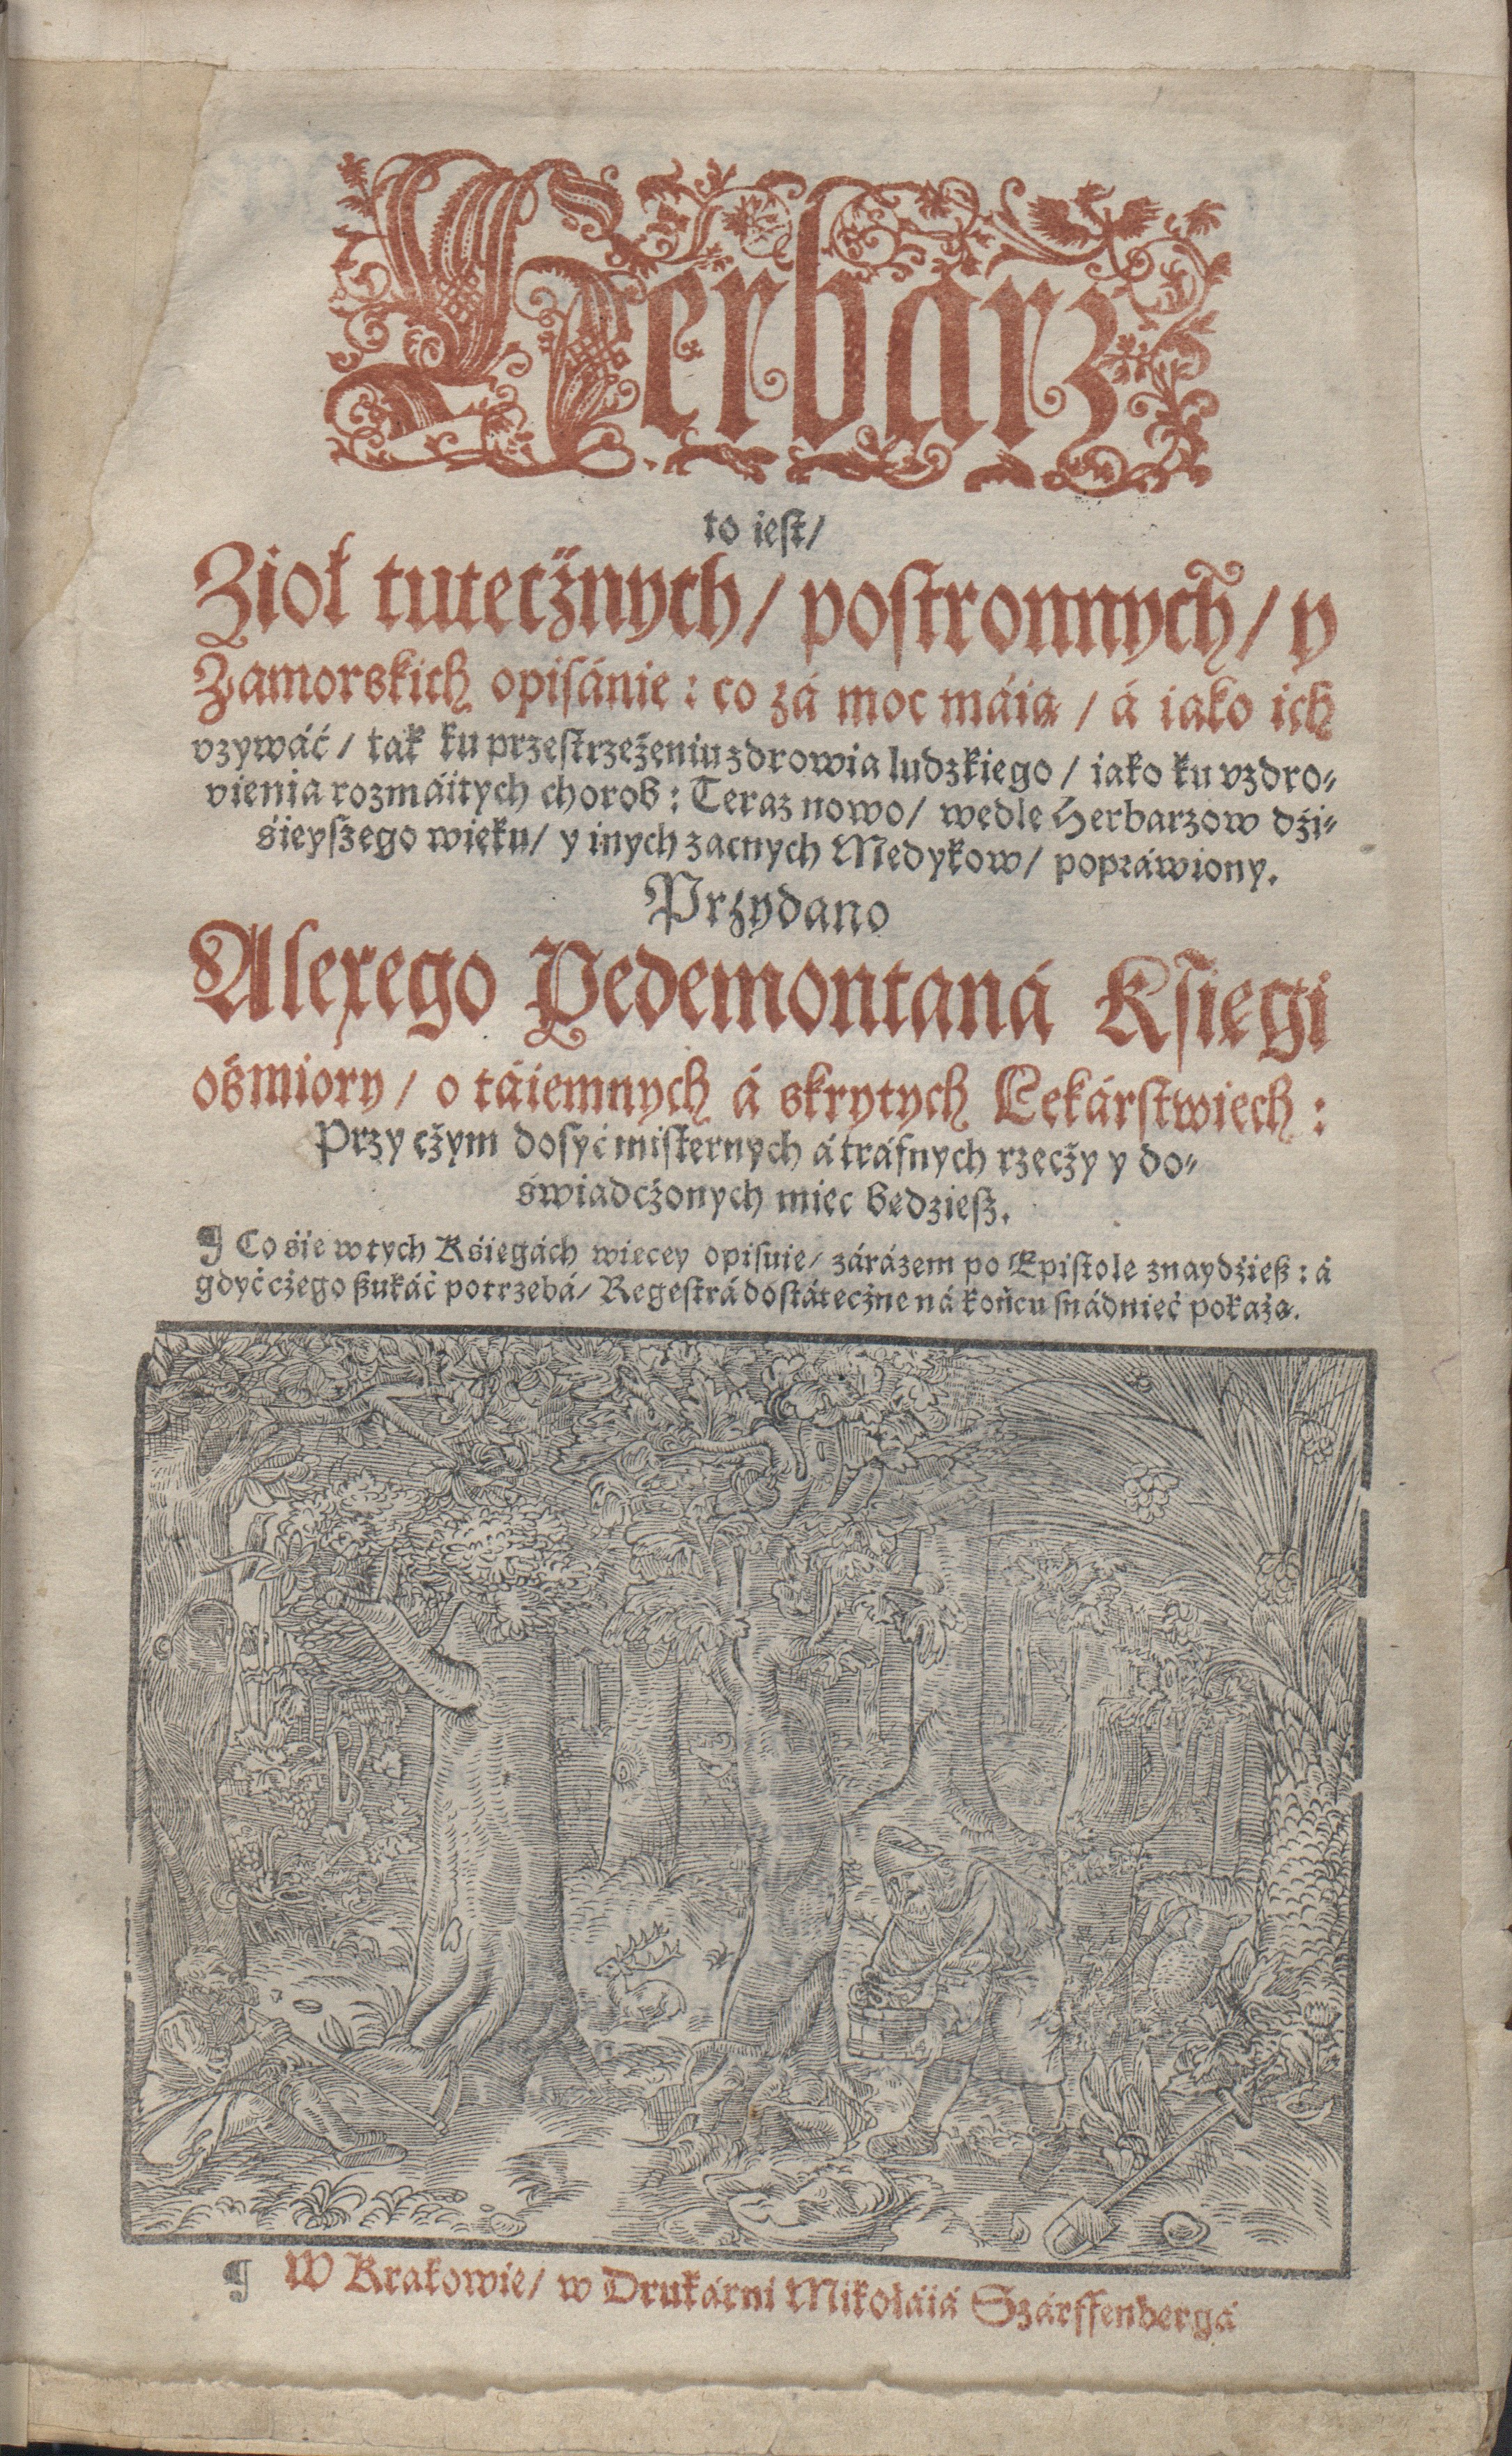 Herbarz
to iest/
Zioł tutecżnych/ postronnych/ y
Zamorskich opisánie: co zá moc máią/ á iáko ich
vzywáć/ tak ku przestrzeżeniu zdrowia ludzkiego/ iako ku vzdro-
wienia rozmáitych chorob: Teraz nowo/ wedle Herbarzow dźi-
śieyszego wieku/ y inych zacnych Medykow/ popráwiony.
Przydano
Alexego Pedemontaná Kśięgi
ośmiory/ o táiemnych á skrytych Lekárstwiech:
Przy cżym dosyć misternych á tráfnych rzecży y do-
świadcżonych miec bedziesz.
¶ Co śie w tych Kśiegách wiecey opisuie/ zárázem po Epistole znaydźiesz: á
gdyć cżego szukáć potrzebá/ Regestrá dostátecżne ná końcu snádnieć pokażą.
¶ W Krakowie/ w Drukárni Mikołáiá Szárffenbergá